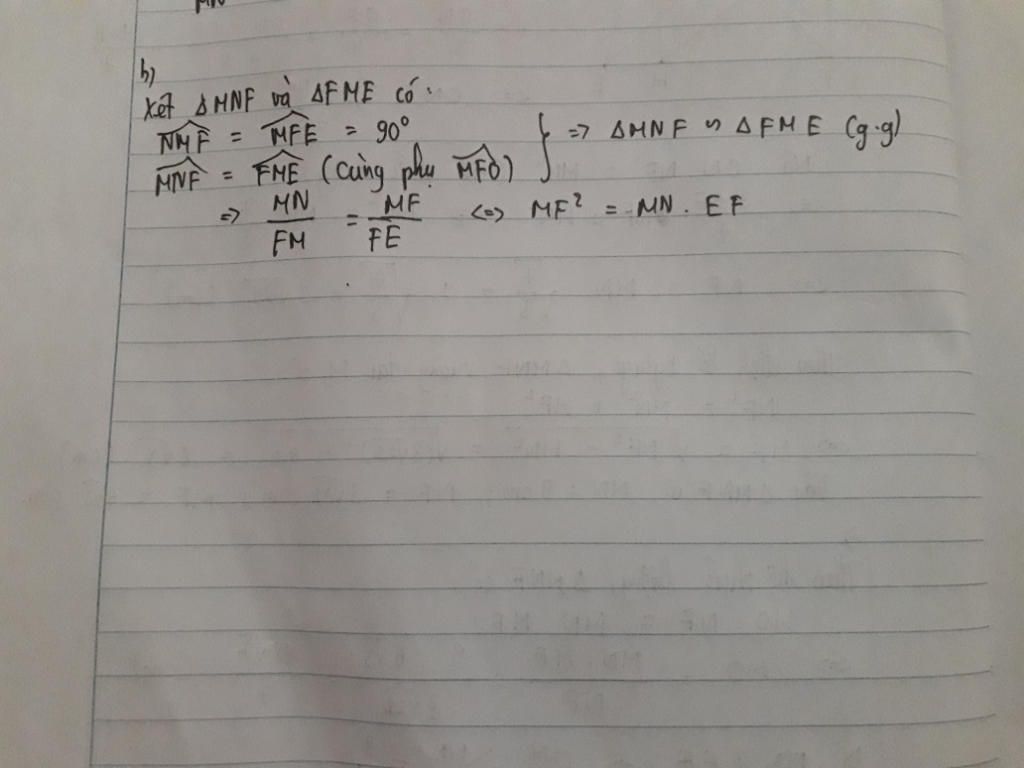 MN
b)
Xét ΔMNF và ΔFME có:
NMF = MFE = 90°
MNF = FME (Cùng phụ MFO) } => ΔMNF ∽ ΔFME (g.g)
=> MN/FM = MF/FE <=> MF² = MN . EF